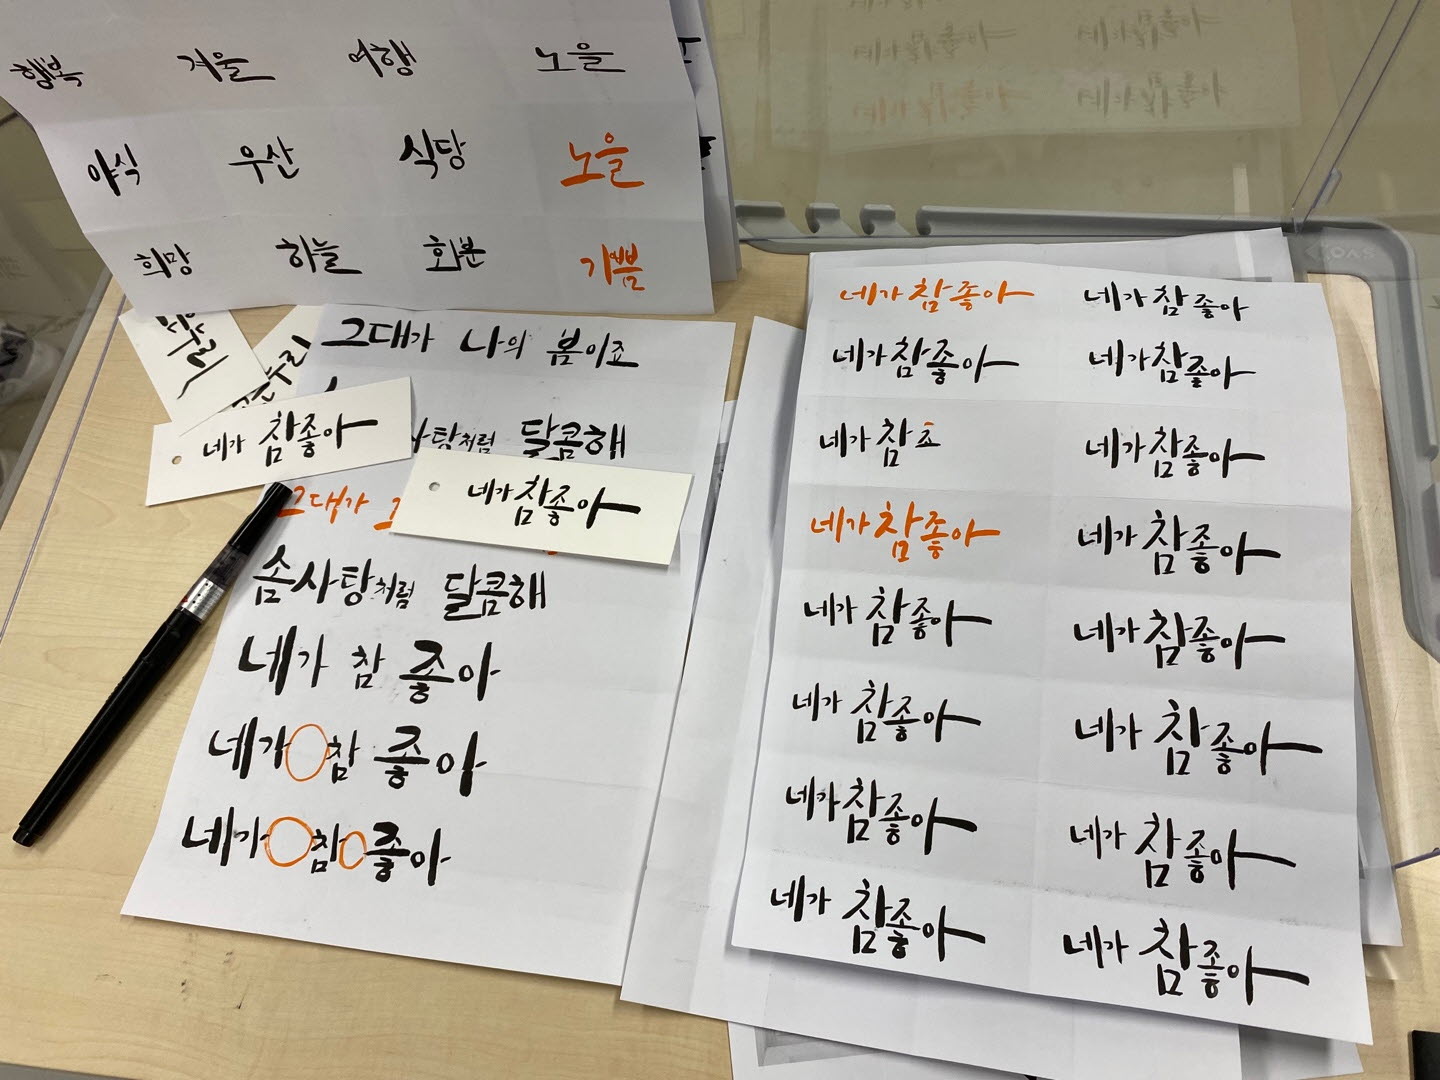 행복 겨울 여행 노을
야식 우산 식당 노을
희망 하늘 화분 기쁨
그대가 나의 봄이죠
사탕처럼 달콤해
그대가
솜사탕처럼 달콤해
네가 참 좋아
네가 참 좋아
네가 참 좋아
네가 참좋아
네가 참좋아
네가 참 좋아 네가 참 좋아
네가 참좋아 네가 참좋아
네가 참 조 네가 참좋아
네가 참좋아 네가 참좋아
네가 참좋아 네가 참좋아
네가 참좋아 네가 참좋아
네가 참좋아 네가 참좋아
네가 참좋아 네가 참좋아